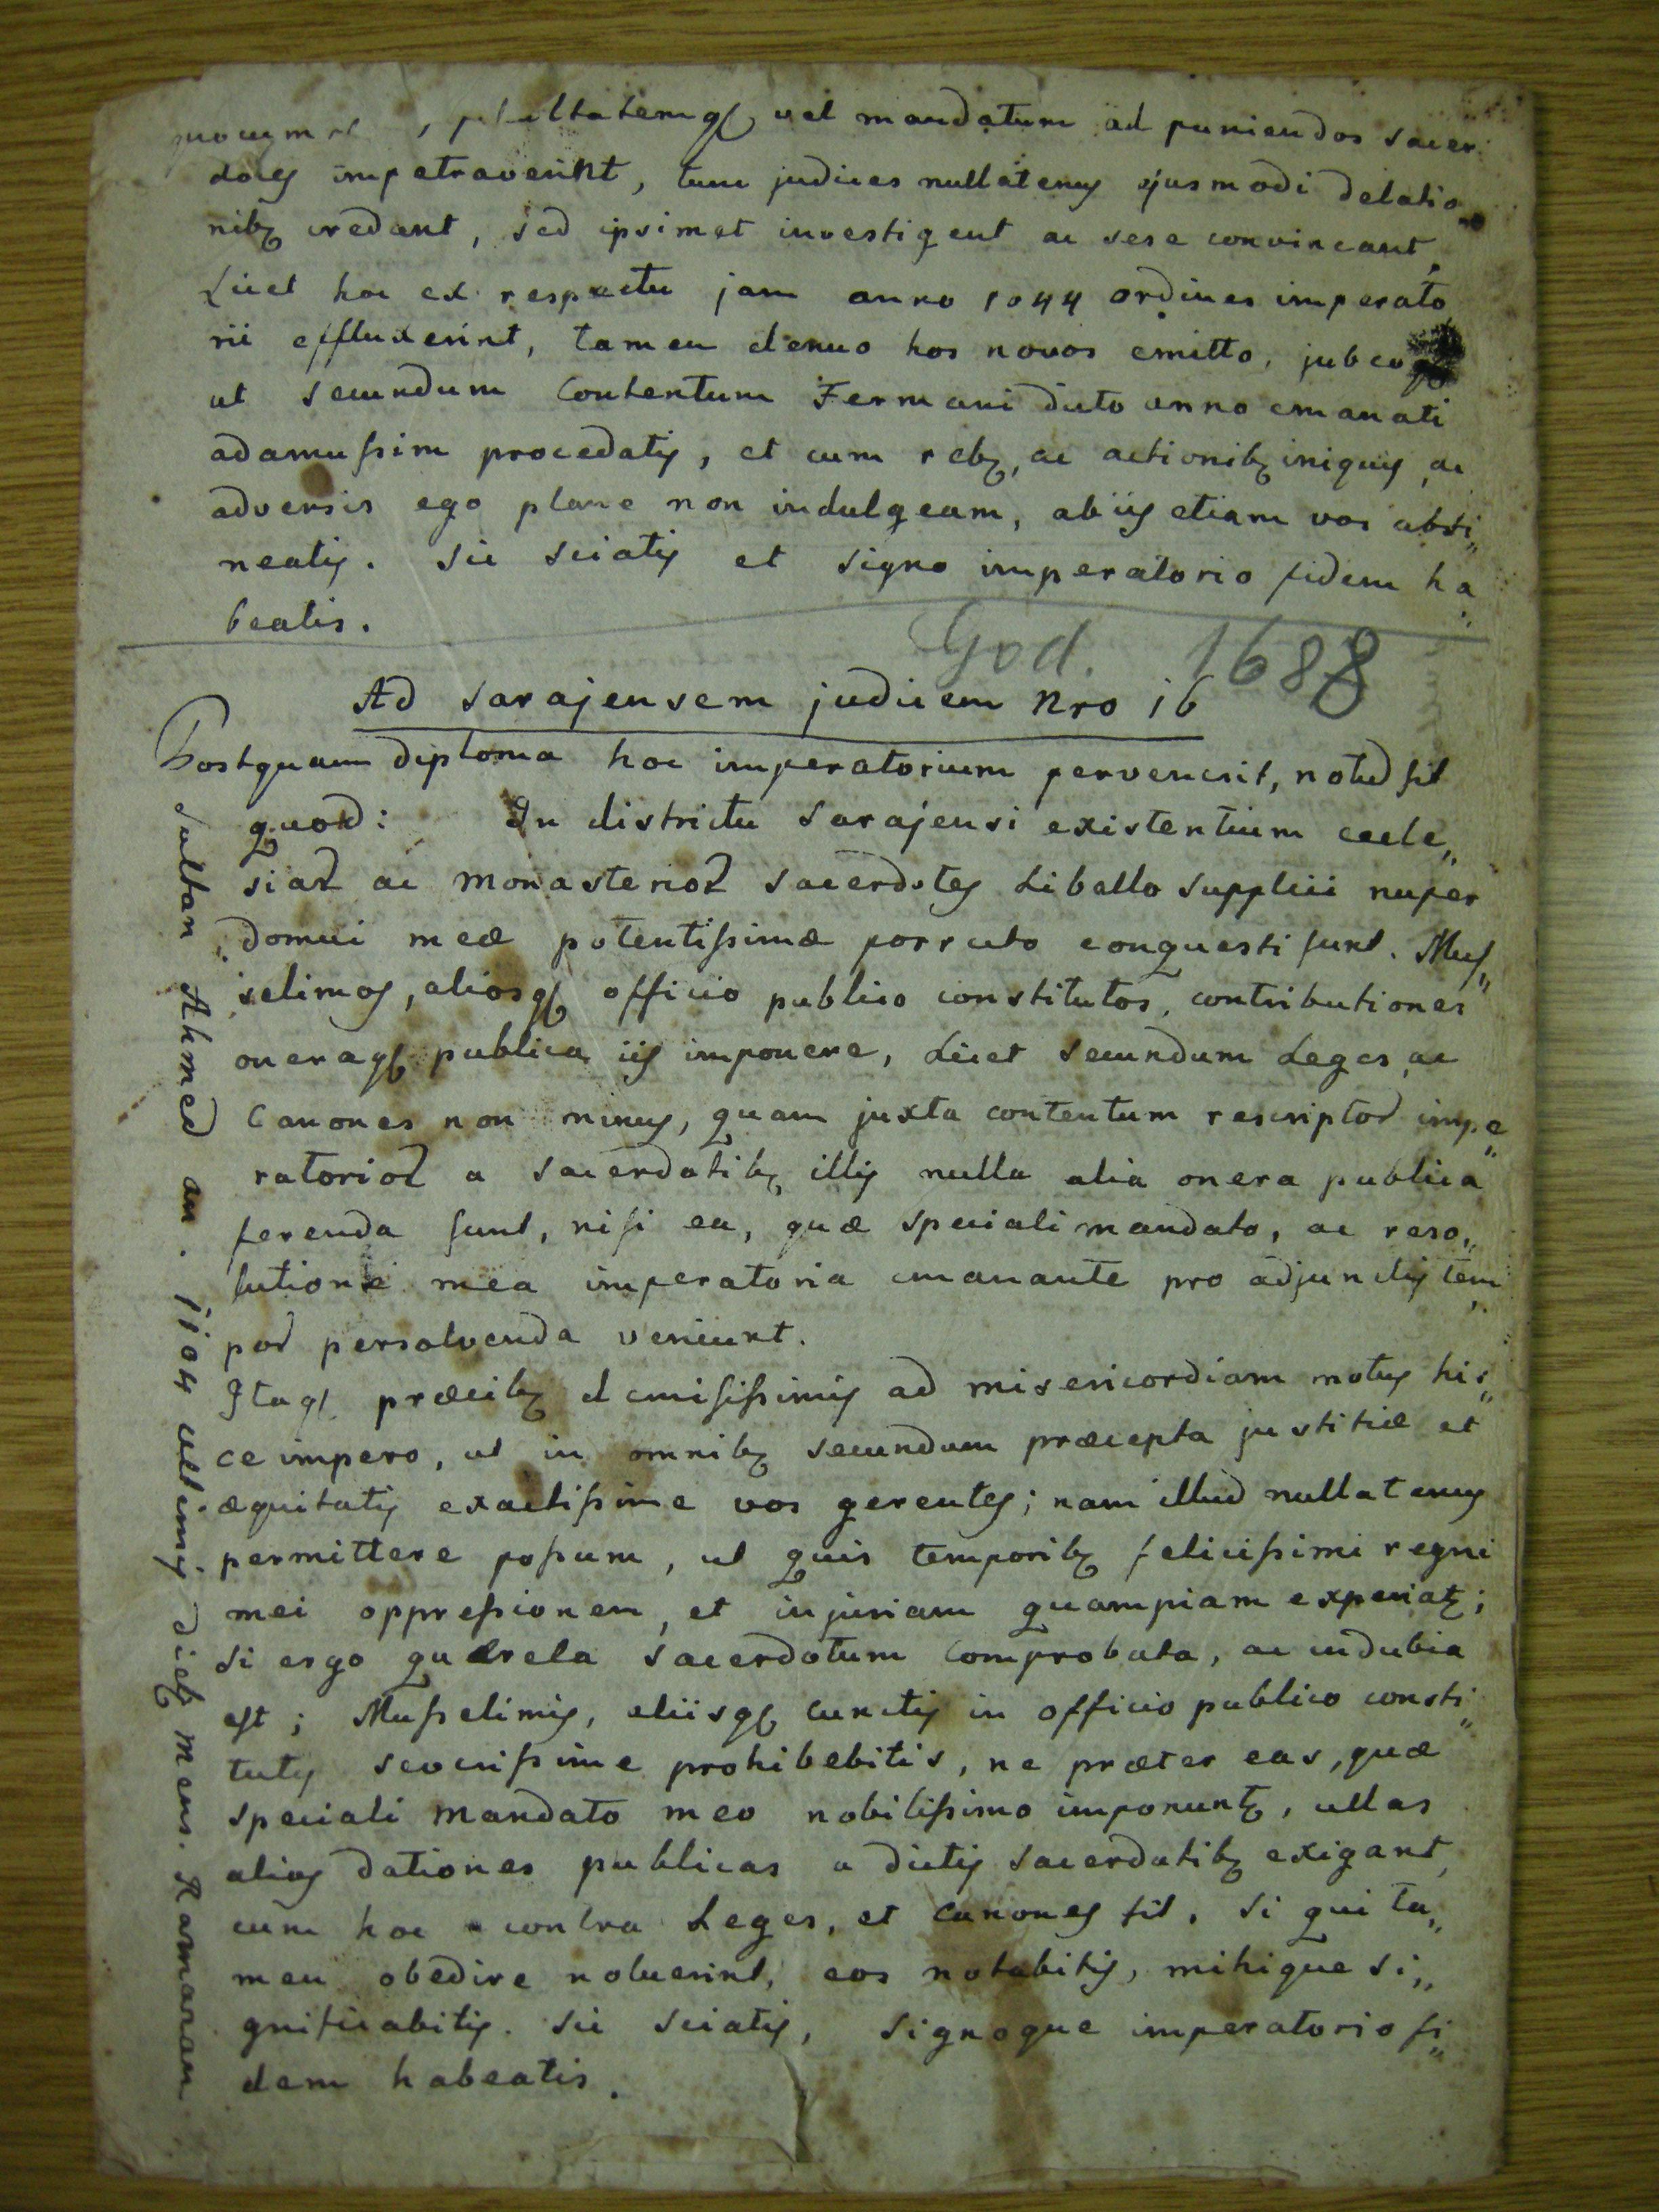 vel mandatum ad puniendos sacer
dotes impetraverint, tum judices nullatenus ejusmodi delatio„
nibq credant, sed ipsimet investigent ac sese convincant,
Licet hoc ex respectu jam anno 1044 ordines imperato
rii effluxerint, tamen denuo hos novos emitto, jubeo
ut secundum Contentum Fermani dicto anno emanati
adamussim procedatis, et cum rebq, ac actionibq iniquis, ac
adversis ego plane non indulgeam, ab iis etiam vos absti„
neatis. Sic sciatis et signo imperatorio fidem ha„
beatis.
God. 1688
Ad Sarajensem judicem Nro 16
Postquam diploma hoc imperatorium pervenerit, notud sit
quod: In districtu Sarajensi existentium eccle„
siad ac Monasteriod sacerdotes Libello supplici nuper
domui meæ potentissimæ porrecto conquesti sunt. Mus„
selimos, aliosq officio publico constitutos, contributiones
oneraq publica iis imponere, Licet secundum Leges ac
Canones non minus, quam juxta contentum rescriptod impe„
ratoriod a sacerdotibq illis nulla alia onera publica
ferenda sunt, nisi ea, quæ speciali mandato, ac reso„
lutione mea imperatoria emanante pro adjunctis tem„
pod persolvenda veniunt.
Itaq præcibq demississimis ad misericordiam motus his„
ce impero, ut in omnibq secundum præcepta justitiæ et
æquitatis exactissime vos gerentes; nam illud nullatenus
permittere possum, ut quis temporibq felicissimi regni
mei oppressionem, et injuriam quampiam experiatq;
Si ergo quærela sacerdotum Comprobata, ac indubia
est; Musselimis, aliisq cunctis in officio publico consti„
tutis severissime prohibebitis, ne præter eas, quæ
speciali Mandato meo nobilissimo imponuntq, ullas
alias dationes publicas a dictis sacerdotibq exigant,
cum hoc contra Leges, et Canones sit. Si qui ta„
men obedire noluerint, eos notabitis, mihique si„
gnificabitis. Sic sciatis, signoque imperatorio fi„
dem habeatis.
Sultan Ahmed an. 1104 ultimis diebq mens. Ramazan